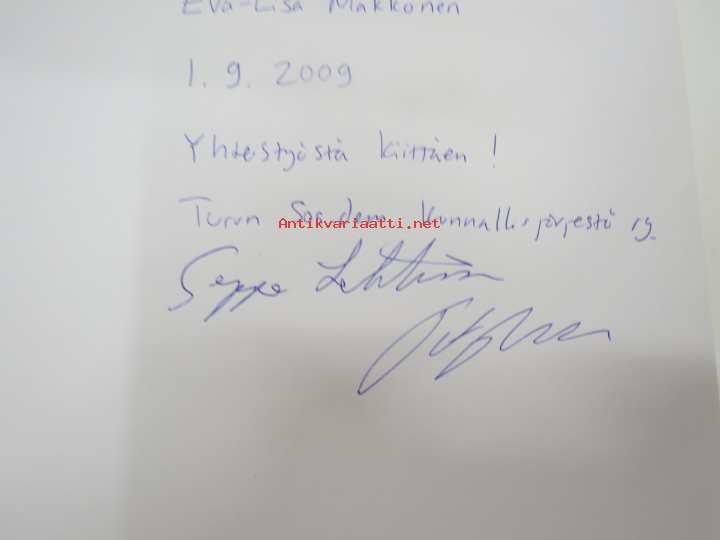 Eva-Lisa Makkonen
1. 9. 2009
Yhteistyöstä kiittäen !
Turun Sos.dem. Kunnallisjärjestö ry.
Antikvariaatti.net
Seppo Lehtinen